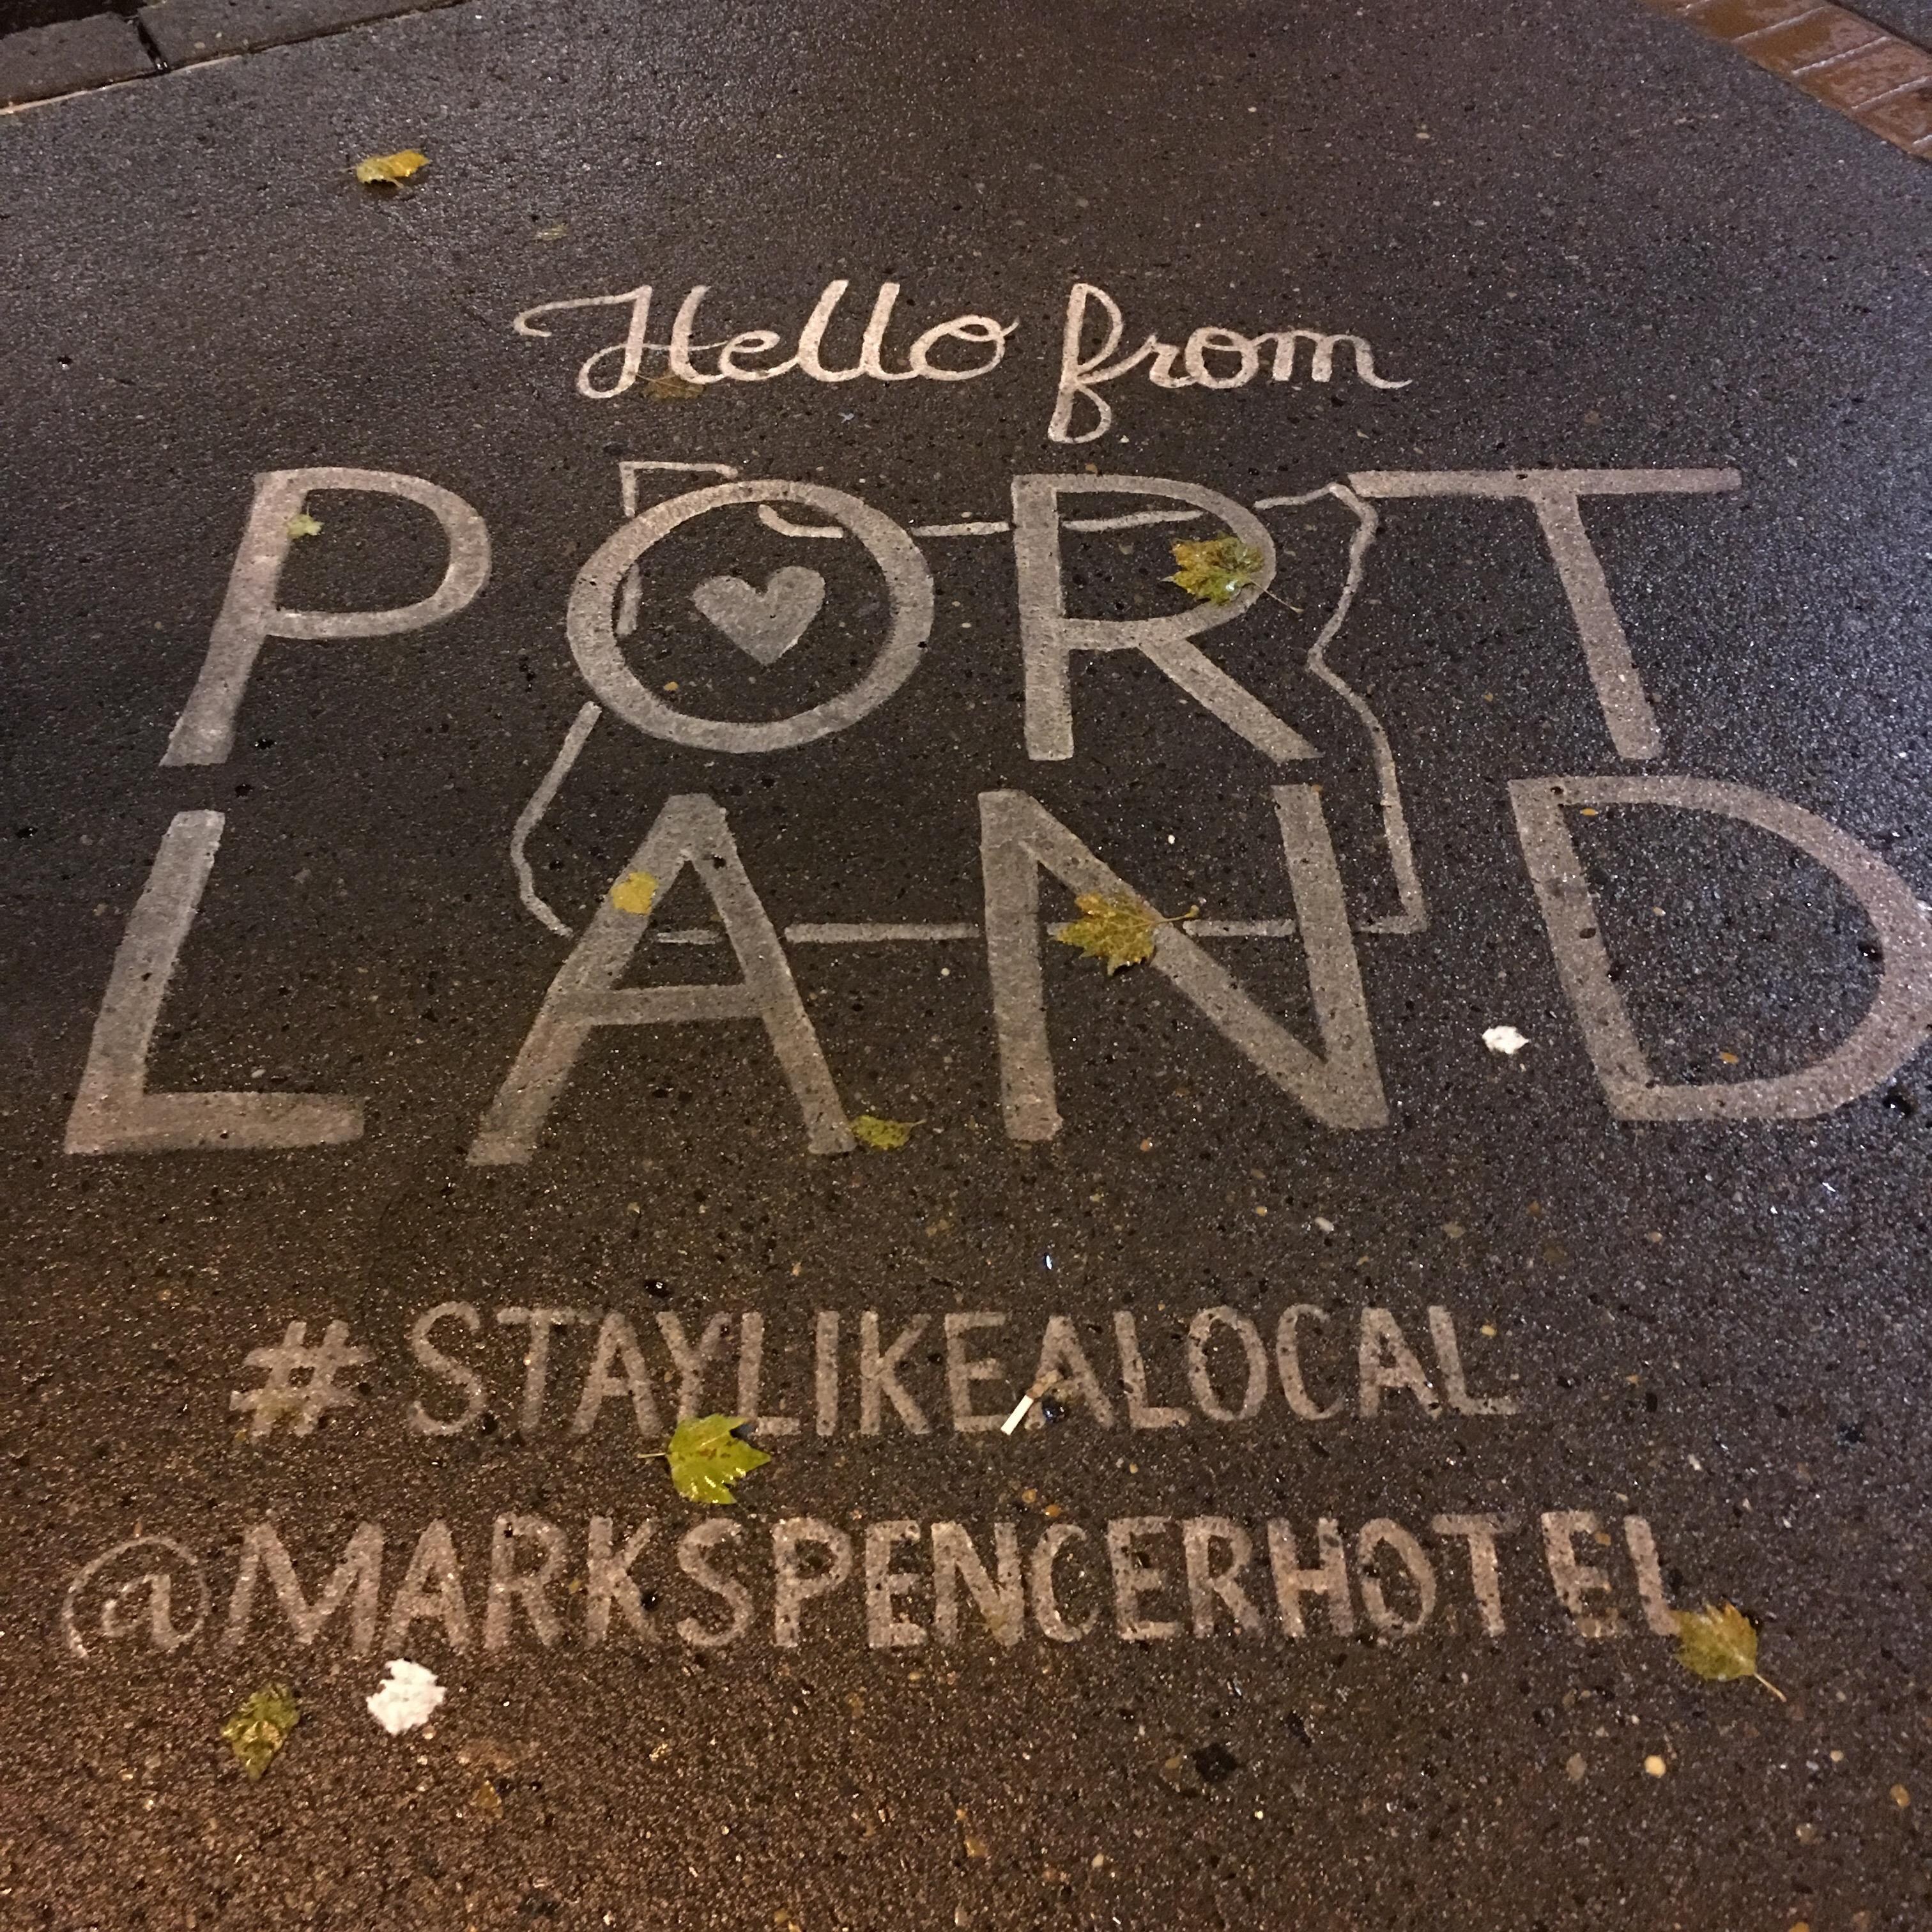 Hello from
PORT
LAND
#STAYLIKEALOCAL
@MARKSPENCERHOTEL